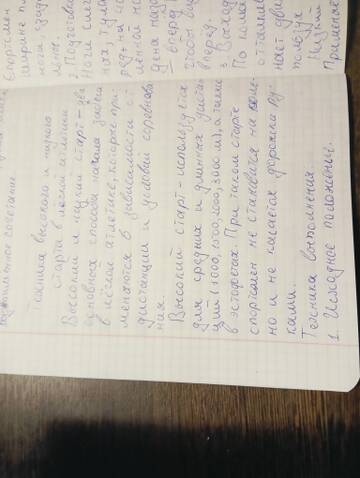 сочетании.
Техника высокого и низкого
старта в легкой атлетике
Высокий и низкий старт - два
основных способа начала забега
в лёгкой атлетике, которые при-
меняются в зависимости от
дистанции и условий соревнова
ний.
Высокий старт - используется
для средних и длинных дистан
ций (1000, 1500, 2000, 3000 м), а также
в эстафетах. При таком старте
спортсмен не становится на коле-
но и не касается дорожки ру-
ками.
Техника выполнения.
1. Исходное положение.
Спортсмен
ширине п
ноги, сзади
2. Подготовка
Ноги слег
нах, тул
менной но
дена наза
вперед
чтобы выс
вперед.
3. Выход
По коман
отталкив
нает дви
Низкий
Применяе